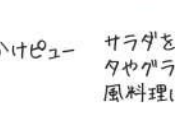 かけピュー
サラダを
タやグラ
風料理に